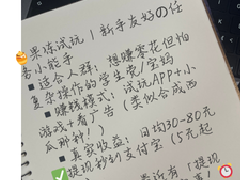 果冻试玩｜新手友好の任
务小能手
■适合人群：想赚零花但怕
复杂操作的学生党/宝妈
■赚钱模式：试玩APP+小
游戏+看广告（类似合成西
瓜那种！）
■真实收益：日均30-80元
✅提现秒到支付宝（5元起